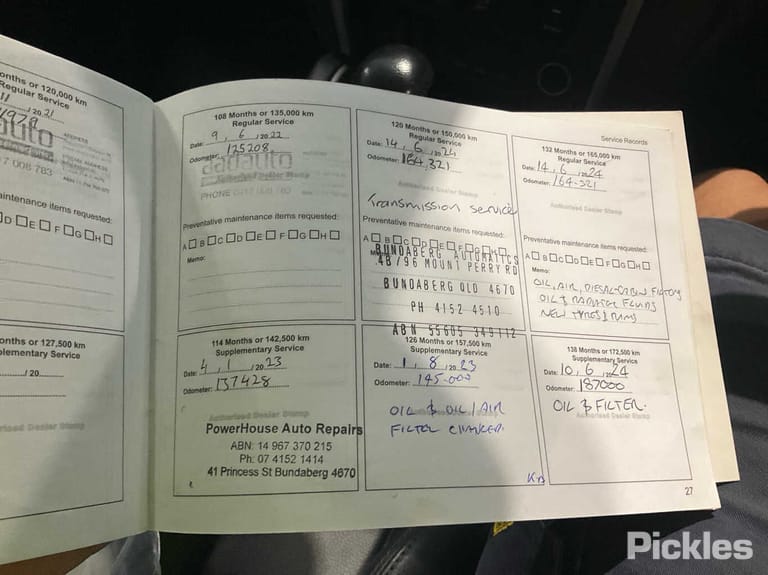 onths or 120,000 km
Regular Service
11 / 20 21
dauto
7 008 783
aintenance items requested:
D E F G H
onths or 127,500 km
plementary Service
/ 20
rised Dealer Stamp
108 Months or 135,000 km
Regular Service
Date: 9 , 6 , 20 22
Odometer: 125208
dauto
Authorised Dealer Stamp
PHONE
Preventative maintenance items requested:
A B C D E F G H
Memo:
114 Months or 142,500 km
Supplementary Service
Date: 4 , 1 , 20 23
Odometer: 137428
Authorised Dealer Stamp
PowerHouse Auto Repairs
ABN: 14 967 370 215
Ph: 07 4152 1414
41 Princess St Bundaberg 4670
120 Months or 150,000 km
Regular Service
Date: 14 , 6 , 2024
Odometer: 164,321
Authorised Dealer Stamp
Transmission service
Preventative maintenance items requested:
A B C D E F G H
BUNDABERG AUTOMATICS
4B/96 MOUNT PERRY RD
BUNDABERG QLD 4670
PH 4152 4510
ABN 55605 349112
126 Months or 157,500 km
Supplementary Service
Date: 1 , 8 , 20 23
Odometer: 145-000
OIL & OIL / AIR
FILTER CHANGED.
Service Records
132 Months or 165,000 km
Regular Service
Date: 14 , 6 , 2024
Odometer: 164-321
Authorised Dealer Stamp
Preventative maintenance items requested:
A B C D E F G H
Memo:
OIL, AIR, DIESAL-CABIN FILTERS
OIL & RADIATOR FLUIDS
NEW TYRES & RIMS
138 Months or 172,500 km
Supplementary Service
Date: 10 , 6 , 2024
Odometer: 187000
OIL & FILTER.
Authorised Dealer Stamp
27
Pickles